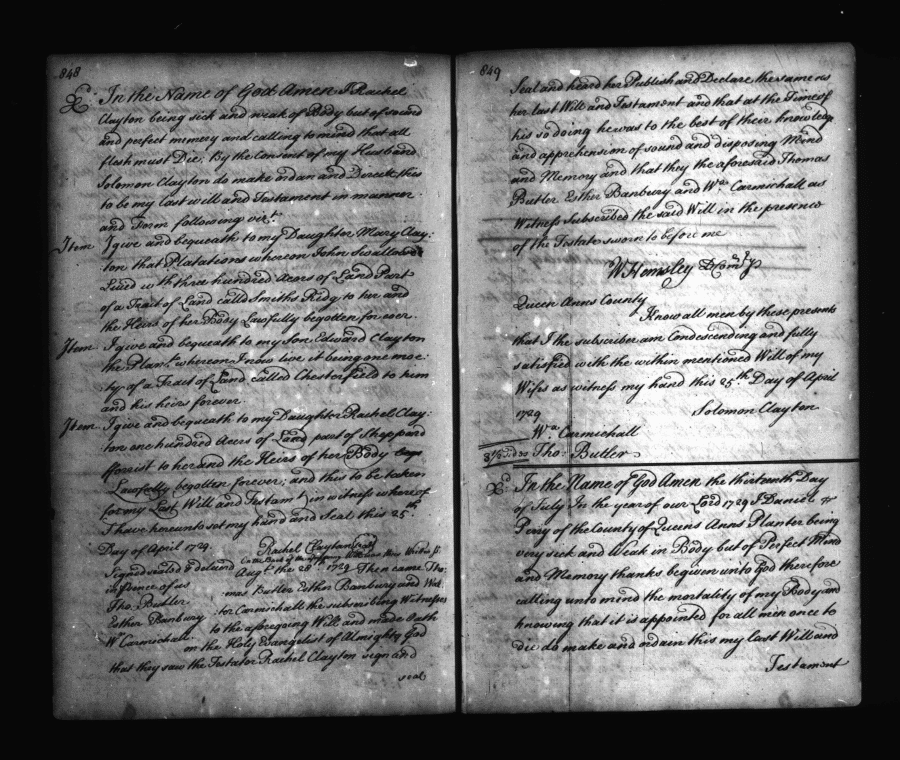 848
In the Name of God Amen I Rachel
Clayton being sick and weak of Body but of sound
and perfect memery and calling to mind that all
flesh must Die. By the Consent of my Husband
Solomon Clayton do make ordan and Direckt this
to be my Last will and Testament in manner
and Form following vizt.
Item I give and bequeath to my Daughter Mary Clay:
ton that Platations whereon John Swallow
Lived with thre hundred Acers of Land Part
of a Trait of Land called Smiths Ridg to her and
the Heirs of her Body Lawfully begotten for ever.
Item I give and bequeath to my Son Edward Clayton
the Plant. whereon I now live it being one moe:
ty of a Tract of Land called Chesterfield to him
and his heirs forever.
Item I give and bequeath to my Daughter Rachel Clay:
ton one hundred Acers of Land part of Sheppard
fforrist to her and the Heirs of her Body
Lawfully begotten forever; and this to be taken
for my Last Will and Testamt. in witness whereof
I have hereunto set my hand and Seal this 25th.
Day of April 1729.
Rachel Clayton seal
Signed sealed & deliverd
in presence of us
Tho: Butler
Esther Banbury
Wm Carmichall.
Augt. the 28th 1729 Then came Tho:
mas Butler Esther Banbury and
Carmichall the subscribing Witnesses
to the aforegoing Will and made Oath
on the Holy Evangelist of Almighty God
that they saw the Testator Rachel Clayton sign and
seal
849
Seal and heard her Publish and Declare the same as
her last Will and Testament and that at the Time of
his so doing he was to the best of their knowledge
and apprehension of sound and disposing Mind
and Memory and that they the aforesaid Thomas
Butler Esther Banbury and Wm. Carmichall as
Witness Subscribed the said Will in the presence
of the Testate sworn to before me
W Hemsley
Queen Anns County
Know all men by these presents
that I the subscriber am Condescending and fully
satisfied with the within mentioned Will of my
Wifes as witness my hand this 25th Day of April
1729
Solomon Clayton
Wm. Carmichall
Tho: Butler
In the Name of God Amen the thirteenth Day
of July In the year of our Lord 1729 I Daniel
Perry of the County of Queens Anns Planter being
very sick and Weak in Body but of Perfect Mind
and Memory thanks be given unto God therefore
calling unto mind the mortality of my Body and
knowing that it is appointed for all men once to
die do make and ordain this my last Will and
Testament